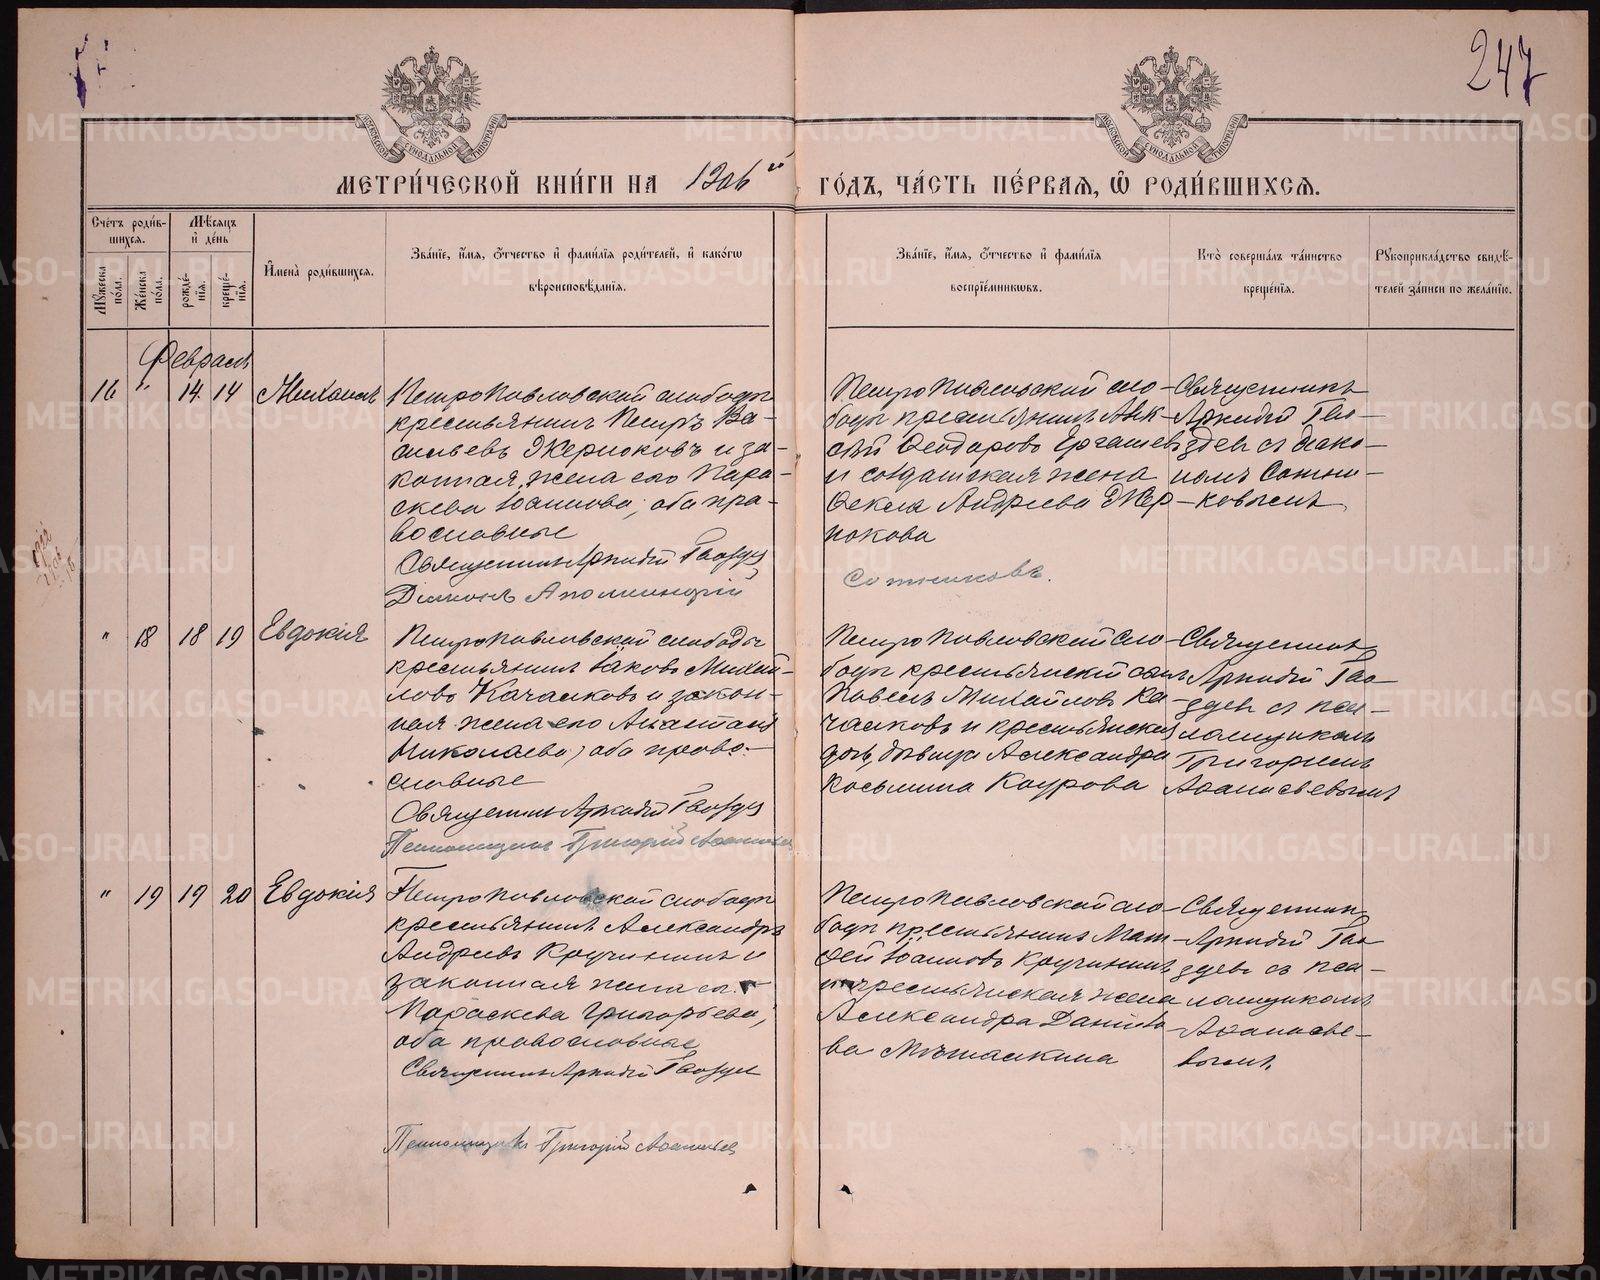 247
МОСКОВСКОЙ СѴНОДАЛЬНОЙ ТИПОГРАФІИ
МОСКОВСКОЙ СѴНОДАЛЬНОЙ ТИПОГРАФІИ
МЕТРИ́ЧЕСКОЙ КНИ́ГИ НА 1906й ГО́ДЪ, ЧА́СТЬ ПЕ́РВАЯ, Ѡ РОДИ́ВШИХСЯ.
Сче́тъ роди́в-
шихся.
Мѣ́сяцъ
и де́нь
Мꙋ́жеска
по́ла.
Же́нска
по́ла.
рожде́-
нїя.
креще́-
нїя.
Имена̀ роди́вшихся.
Зва́нїе, и́мя, о́тчество и фами́лїя роди́телей, и како́гѡ
вѣроисповѣ́данїя.
Зва́нїе, и́мя, о́тчество и фами́лїя
воспрїе́мниковъ.
Кто̀ соверша́лъ та́инство
креще́нїя.
Рꙋкоприкла́дство свидѣ́-
телей за́писи по жела́нїю.
Февраль
16 " 14 14 Михаилъ
Петропавловской слободы
крестьянинъ Петръ Ва-
сильевъ Жерноковъ и за-
конная жена его Пара-
скева Іоаннова, оба пра-
вославные
Священникъ Аркадій Гвоздев
Діаконъ
Петропавловской сло-
боды крестьянинъ Алек-
сѣй Ѳеодоровъ Ергашевъ
и солдатская жена
Ѳекла Андреева Жер-
нокова
Священникъ
Аркадій Гво-
здевъ съ діако-
номъ Сотни-
ковымъ
Сотниковъ.
" 18 18 19 Евдокія
Петропавловской слободы
крестьянинъ Іаковъ Михай-
ловъ Качалковъ и закон-
ная жена его Анастасія
Николаева, оба право-
славные
Священникъ Аркадій Гвоздев
Псаломщикъ Григорій Аѳанасьев
Петропавловской сло-
боды крестьянскій сынъ
Павелъ Михайловъ Ка-
чалковъ и крестьянская
дочь, дѣвица Александра
Косьмина Каурова
Священникъ
Аркадій Гво-
здевъ съ пса-
ломщикомъ
Григоріемъ
Аѳанасьевымъ
" 19 19 20 Евдокія
Петропавловской слободы
крестьянинъ Александръ
Андреевъ Кручининъ и
законная жена его
Параскева Григорьева,
оба православные
Священникъ Аркадій Гвоздев
Псаломщикъ Григорій Аѳанасьев
Петропавловской сло-
боды крестьянинъ Мат-
ѳей Іоанновъ Кручининъ
и крестьянская жена
Александра Данило-
ва
Священникъ
Аркадій Гво-
здевъ съ пса-
ломщикомъ
Аѳанасье-
вымъ.
METRIKI.GASO-URAL.RU